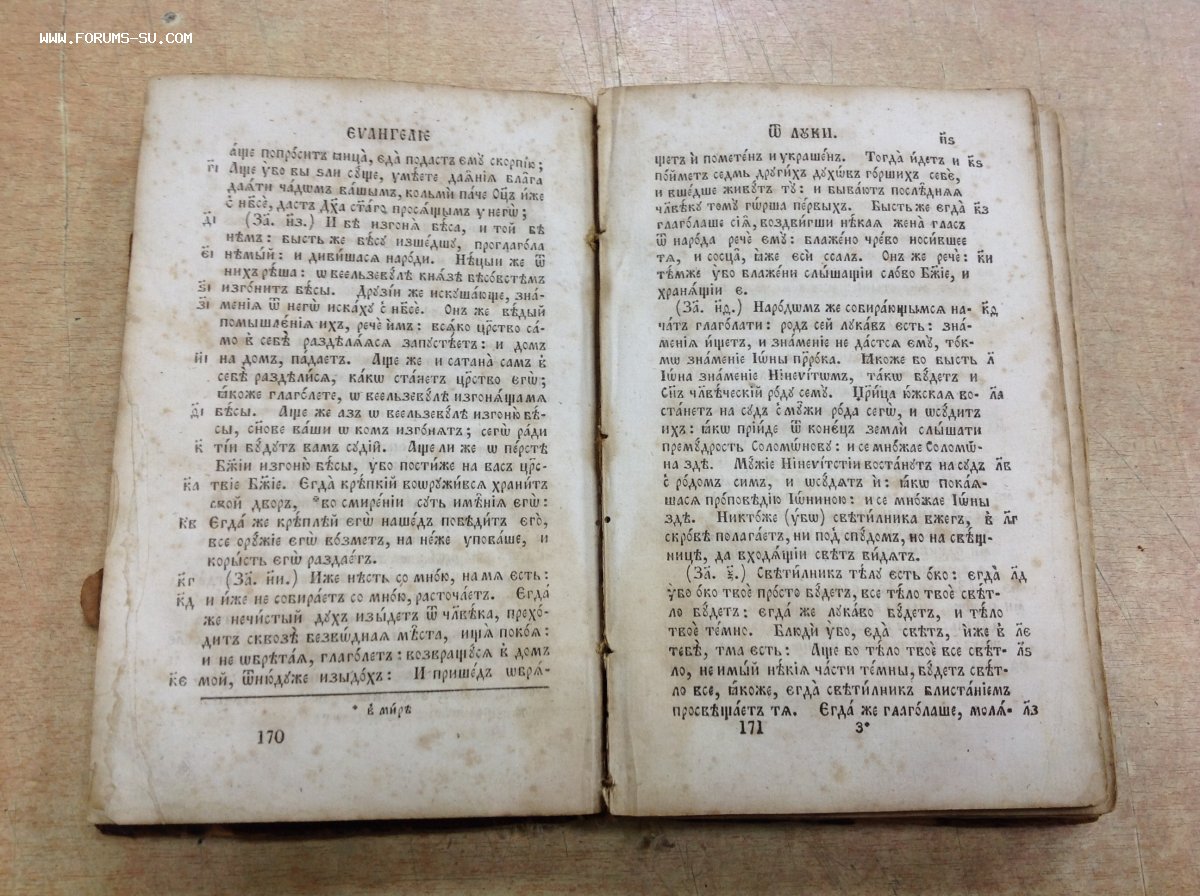 WWW.FORUMS-SU.COM
ЄѴАНГЕЛІЕ
а́ще попро́ситъ ꙗ҆ица̀, єда̀ пода́стъ єм꙽ꙋ̀ скорпі́ю;
г҃і А҆ще ᲂу҆̀бо вы ѕли̑ сꙋ́ще, ᲂу҆мѣ́ете даѧ̑нїѧ бл҃га
даѧ́ти ча́дѡмъ ва́шымъ, кольмѝ па́че Ѻц҃ъ и́же
с̾ нб҃сѐ, да́стъ Дх҃а ст҃а́го просѧ́щымъ ᲂу негѡ̀;
д҃і (За҃. н҃з.) И҆ бѣ̀ изгонѧ̀ бѣ́са, и той бѣ̀
нѣ́мъ: бы́сть же бѣ́сꙋ изше́дшꙋ, проглаго́ла
є҃і нѣмы́й: и диви́шасѧ наро́ди. Нѣ́цыи же ѿ
нихъ рѣ́ша: ѡ веельзевꙋ́лѣ кнѧ́зѣ бѣсо́встѣмъ
ѕ҃і изго́нитъ бѣ́сы. Дрꙋзі́и же искꙋша́юще, зна́-
з҃і менїѧ ѿ негѡ̀ иска́хꙋ с̾ нб҃сѐ. Ѻнъ же вѣ́дый
помышле́нїѧ ихъ, речѐ и҆̀мъ: всѧ́ко цр҃ство са́-
мо в̾ себѣ̀ раздѣлѧ́ѧсѧ запꙋстѣ́етъ: и домъ
и҃і на домъ, па́даетъ. А҆ще же и сатана̀ самъ в̾
себѣ̀ раздѣли́сѧ, ка́кѡ ста́нетъ цр҃ство єгѡ̀;
ꙗ҆́коже глаго́лете, ѡ веельзевꙋ́лѣ изгонѧ́щамѧ
ѳ҃і бѣ́сы. А҆ще же азъ ѡ веельзевꙋ́лѣ изгоню̀ бѣ́-
сы, сн҃ове ва́ши ѡ комъ изго́нѧтъ; сегѡ̀ ра́ди
к҃ ті́и бꙋ́дꙋтъ вамъ сꙋді́й. А҆ще ли же ѡ пе́рстѣ
Бж҃їи изгоню̀ бѣ́сы, ᲂу҆́бо пости́же на васъ цр҃с-
к҃а твїе Бж҃їе. Єгда̀ крѣ́пкїй воѡрꙋжи́всѧ храни́тъ
свой дворъ, *во смире́нїи сꙋть имѣ̑нїѧ єгѡ̀:
к҃в Єгда́ же крѣ́плѣй єгѡ̀ наше́дъ побѣди́тъ єго̀,
все ѻрꙋ́жїе єгѡ̀ во́зметъ, на не́же ᲂупова́ше, и
коры́сть єгѡ̀ раздае́тъ.
к҃г (За҃. н҃и.) И҆же нѣ́сть со мно́ю, на мѧ есть:
к҃д и и́же не собира́етъ со мно́ю, расточа́етъ. Єгда̀
же нечи́стый дꙋхъ изы́детъ ѿ чл҃вѣ́ка, прехо́-
дитъ сквозѣ̀ безвѡ́днаѧ мѣ́ста, ищѧ̀ поко́ѧ:
и не ѡбрѣта́ѧ, глаго́летъ: возвращꙋ́сѧ в̾ домъ
к҃є мой, ѿню́дꙋже изыдо́хъ: И҆ прише́дъ ѡбрѧ́-
* в̾ ми́рѣ
170
Ѿ ЛꙊКИ.
н҃ѕ
щетъ и҆̀ помете́нъ и украше́нъ. Тогда̀ и́детъ и к҃ѕ
по́йметъ седмь дрꙋги́хъ дꙋхѡ́въ го́ршихъ себє̀,
и вше́дше живꙋ́тъ тꙋ: и быва́ютъ послѣ̑днѧѧ
чл҃вѣ́кꙋ томꙋ̀ гѡ́рша пе́рвыхъ. Бы́сть же єгда̀ к҃з
глаго́лаше сїѧ̑, воздви́гши нѣ́каѧ жена̀ гласъ
ѿ наро́да речѐ ємꙋ̀: блаже́но чре́во носи́вшее
тѧ, и сосца̑, ꙗ҆́же єсѝ ссалъ. Ѻнъ же речѐ: к҃и
тѣ́мже ᲂу҆̀бо блаже́ни слы́шащїи сло́во Бж҃їе, и
хранѧ́щїи є.
(За҃. н҃ѳ.) Наро́дѡмъ же собира́ющымсѧ на- к҃ѳ
ча́тъ глаго́лати: родъ сей лꙋка́въ есть: зна́-
менїѧ и́щетъ, и зна́менїе не да́стсѧ ємꙋ, то́к-
мѡ зна́менїе Іѡ́ны пр҃ро́ка. Ꙗ҆́коже бо бысть л҃
Іѡ́на зна́менїе Нінеѵі́тѡмъ, та́кѡ бꙋ́детъ и
Сн҃ъ чл҃вѣ́ческїй ро́дꙋ семꙋ̀. Цр҃и́ца ю́жскаѧ во- л҃а
ста́нетъ на сꙋдъ с̾ мꙋжи ро́да сегѡ̀, и ѡсꙋ́дитъ
ихъ: ꙗ҆́кѡ прїи́де ѿ коне́цъ землѝ слы́шати
премꙋ́дрость Соломѡ́новꙋ: и се мно́жае Соломѡ́-
на здѣ. Мꙋ́жїе Нінеѵі́тстїи воста́нꙋтъ на сꙋдъ л҃в
с̾ ро́домъ симъ, и ѡсꙋ́дѧтъ и҆̀: ꙗ҆́кѡ покаѧ́-
шасѧ про́повѣдїю Іѡ́ниною: и се мно́жае Іѡ́ны
здѣ. Никто́же (ᲂу҆́бѡ) свѣти́лника вжегъ, в̾ л҃г
скро́вѣ полага́етъ, ни под̾ спꙋ́домъ, но на свѣ́щ-
ницѣ, да входѧ́щїи свѣтъ ви́дѧтъ.
(За҃. ѯ҃.) Свѣти́лникъ тѣ́лꙋ есть ѻко: єгда̀ л҃д
ᲂу҆̀бо ѻко твоѐ про́сто бꙋ́детъ, все тѣ́ло твоѐ свѣ́т-
ло бꙋ́детъ: єгда́ же лꙋка́во бꙋ́детъ, и тѣ́ло
твоѐ те́мно. Блюдѝ ᲂу҆̀бо, єда̀ свѣтъ, и́же в̾ л҃є
тебѣ̀, тма есть: А҆ще бо тѣ́ло твоѐ все свѣ́т- л҃ѕ
ло, не имы́й нѣ́кїѧ ча́сти те́мны, бꙋ́детъ свѣ́т-
ло все, ꙗ҆́коже, єгда̀ свѣти́лникъ блиста́нїемъ
просвѣща́етъ тѧ. Єгда́ же глаго́лаше, молѧ́- л҃з
171
3*